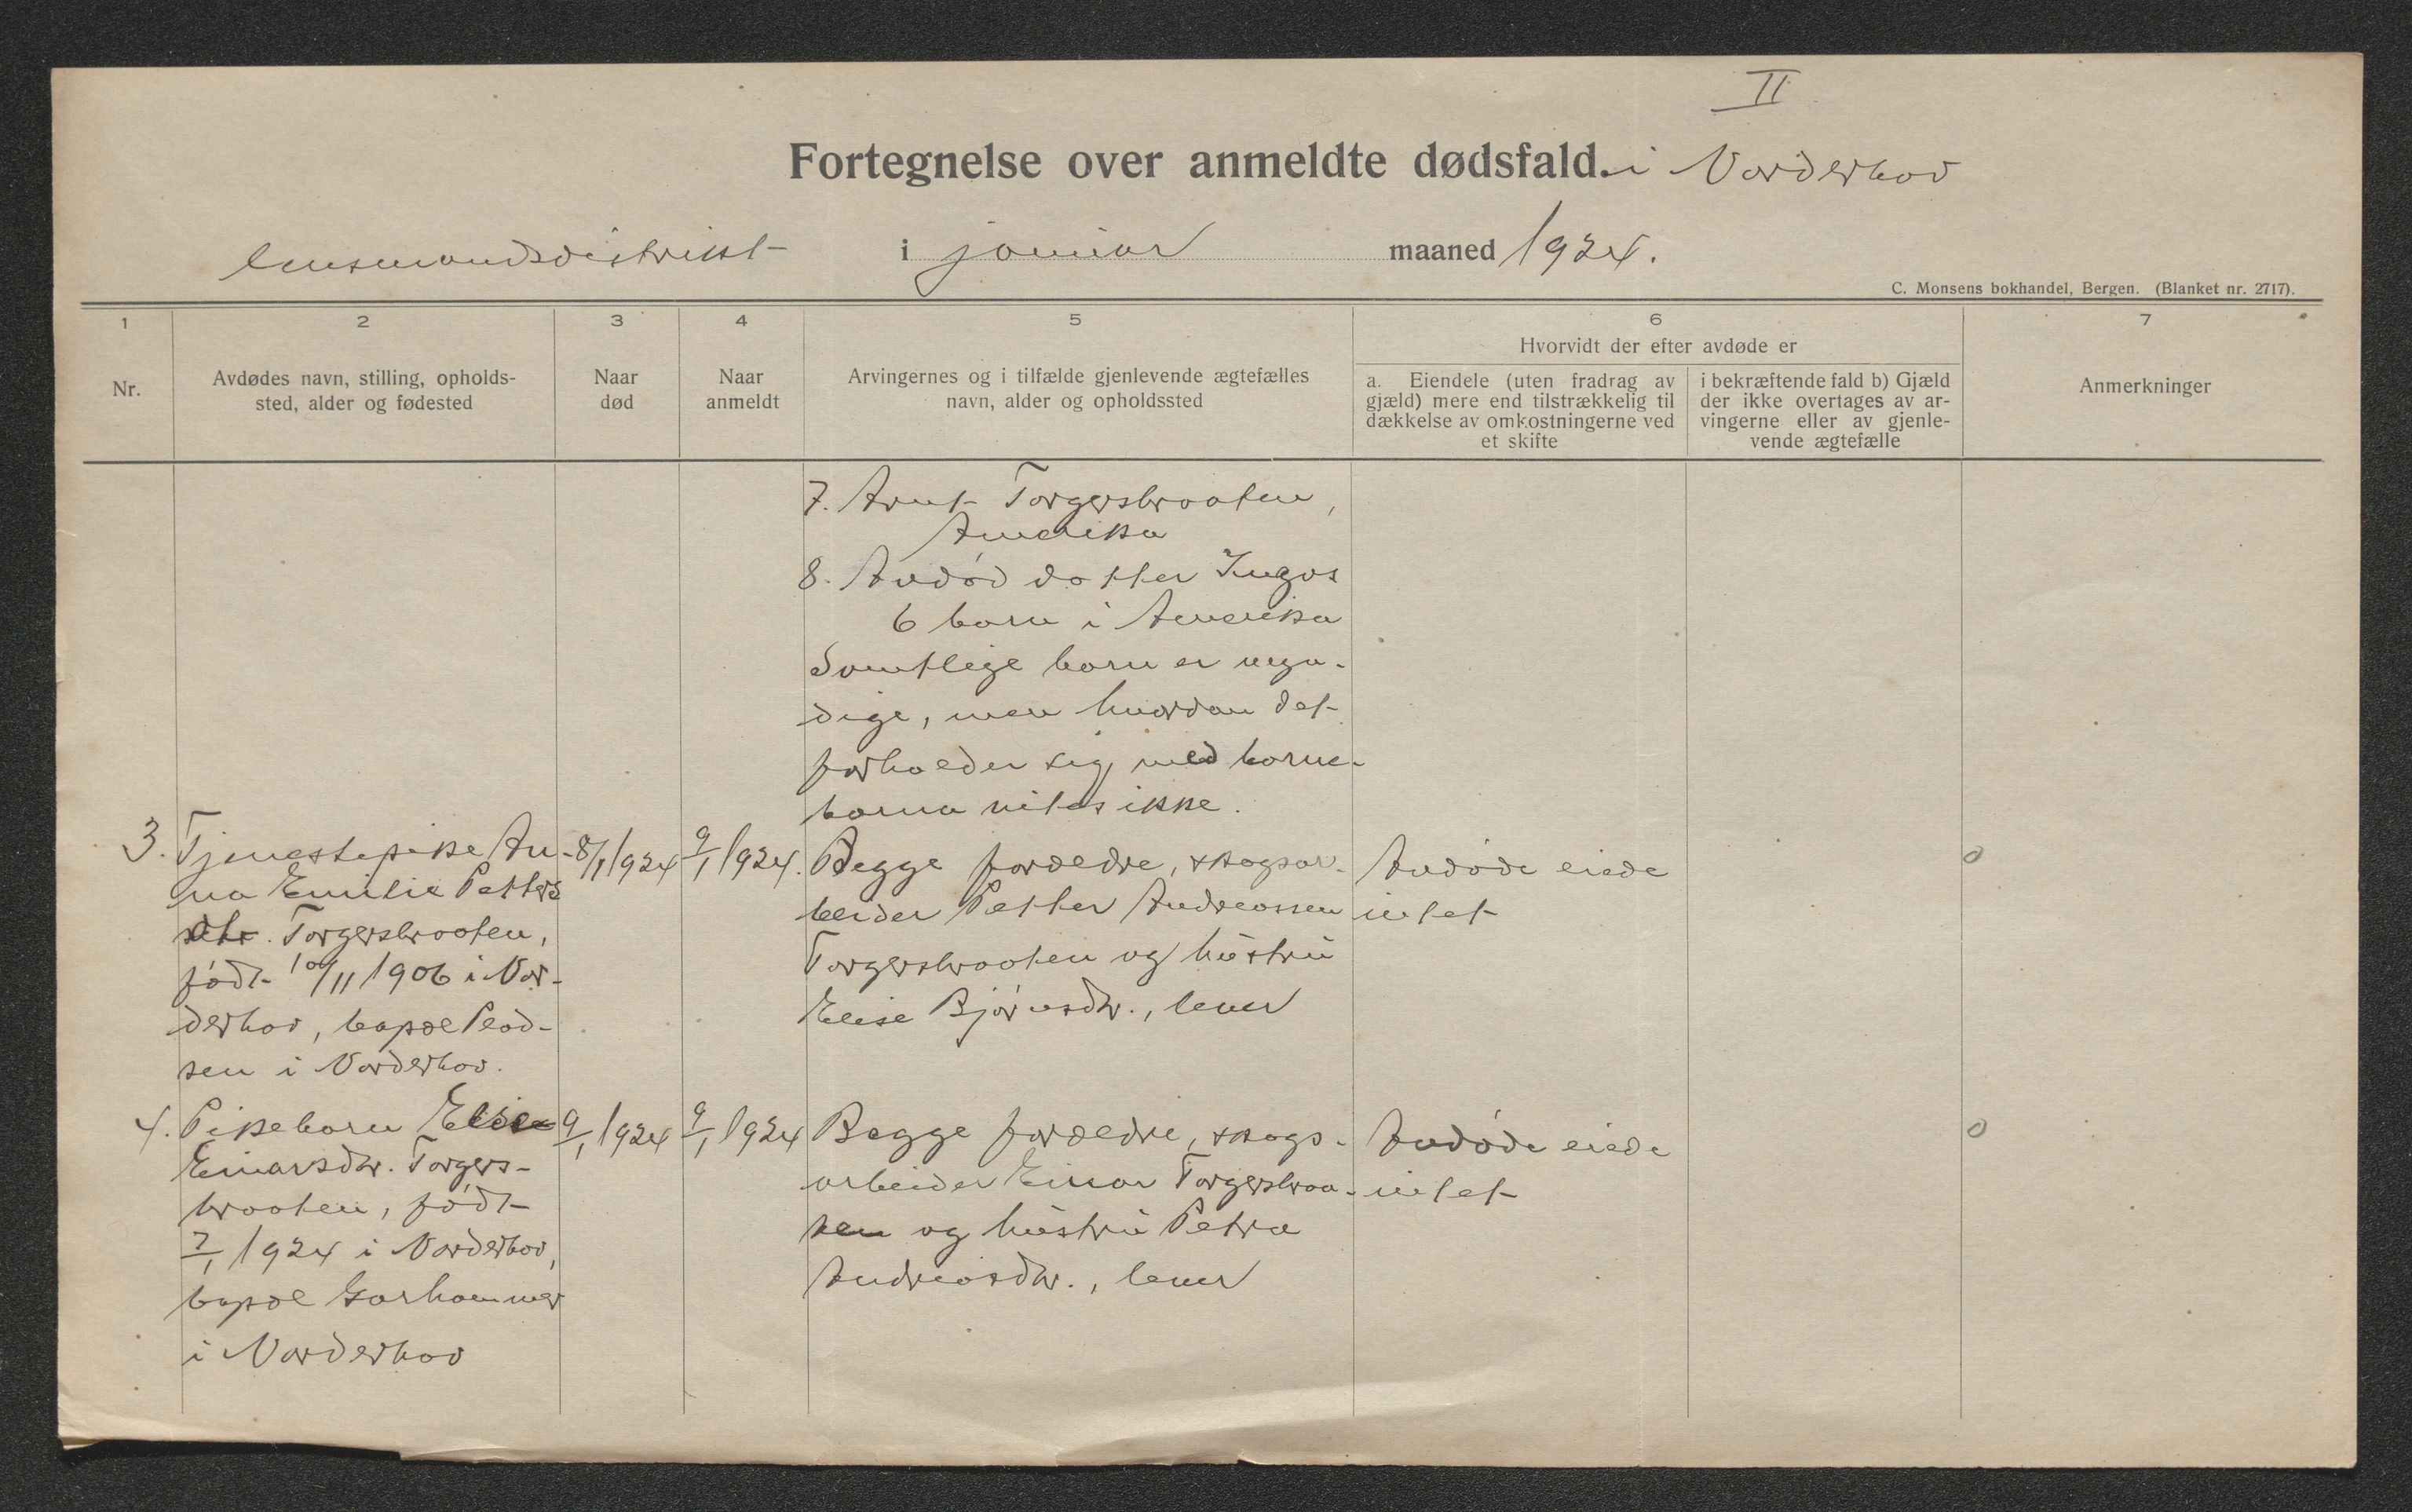 II
Fortegnelse over anmeldte dødsfald. i Norderhov
lensmandsdistrikt i januar maaned 1924.
C. Monsens bokhandel, Bergen. (Blanket nr. 2717).
1 2 3 4 5 6 7
Nr.
Avdødes navn, stilling, opholds-
sted, alder og fødested
Naar
død
Naar
anmeldt
Arvingernes og i tilfælde gjenlevende ægtefælles
navn, alder og opholdssted
Hvorvidt der efter avdøde er
a. Eiendele (uten fradrag av
gjæld) mere end tilstrækkelig til
dækkelse av omkostningerne ved
et skifte
i bekræftende fald b) Gjæld
der ikke overtages av ar-
vingerne eller av gjenle-
vende ægtefælle
Anmerkninger
7. Arnt Torgersbraaten,
Amerika
8. Avdød datter Ingas
6 barn i Amerika
Samtlige barn er myn-
dige, men hvordan det
forholder sig med barne-
barna vites ikke.
3. Tjenestepike An-
na Emilie Petters
dtr. Torgersbraaten,
født 10/11 1906 i Nor-
derhov, bopæl
sen i Norderhov.
8/1 1924
9/1 1924.
Begge forældre, skogsar-
beider Petter Andreassen
Torgersbraaten og hustru
Elise Bjørnsdtr., lever
Avdøde eiede
intet
0
4. Pikebarn Elise
Einarsdtr. Torgers-
braaten, født
7/1 1924 i Norderhov,
bopæl Garhammer
i Norderhov
9/1 1924
9/1 1924
Begge forældre, skogs-
arbeider Einar Torgersbraa-
ten og hustru Petra
Andreasdtr., lever
Avdøde eiede
intet
0